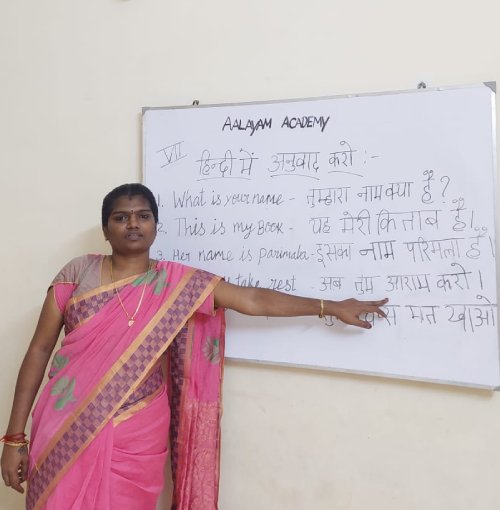 AALAYAM ACADEMY
VII
हिन्दी में अनुवाद करो :-
1. What is your name - तुम्हारा नाम क्या हैं ?
2. This is my Book - यह मेरी किताब हैं।
3. Her name is parimala - इसका नाम परिमला हैं
take rest - अब तुम आराम करो।
मत खाओ